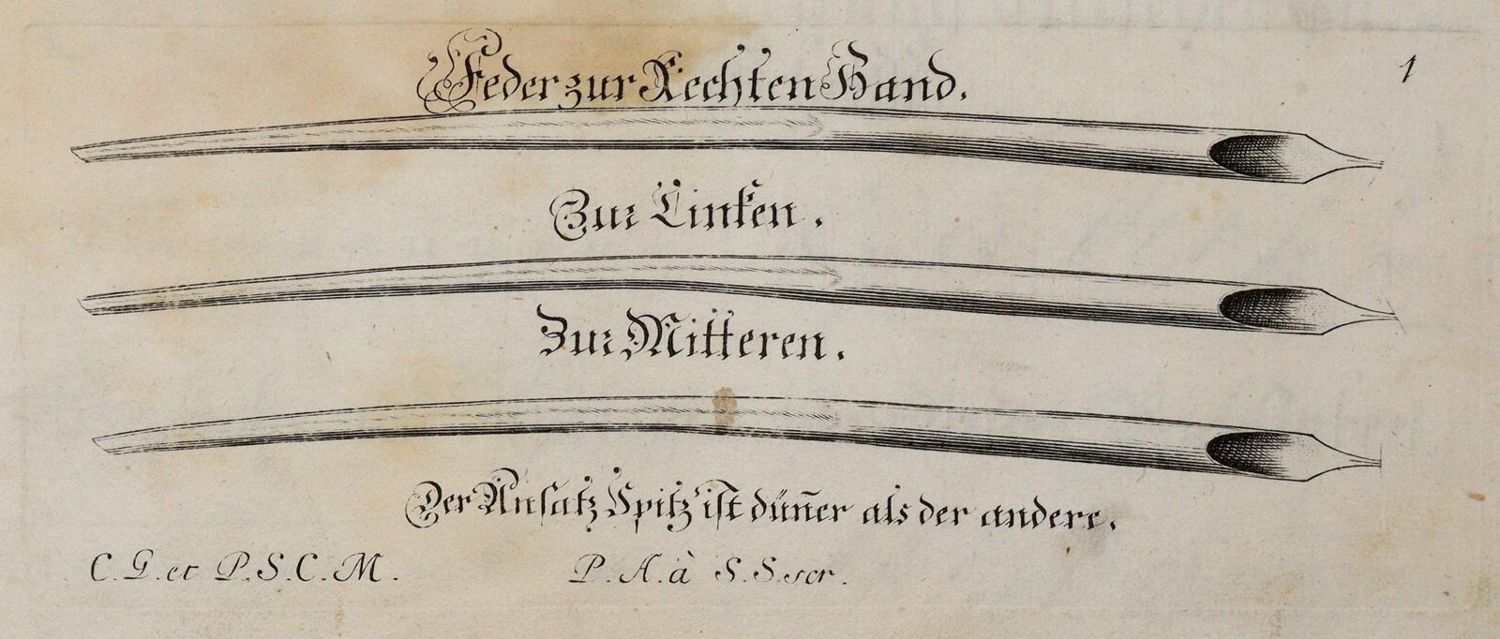 Feder zur Rechten Hand.
1
Zur Linken.
Zur Mitteren.
Der Ansatz Spitz ist dün̄er als der andere.
C. G. et P. S. C. M.
P. A. à S. S. scr.